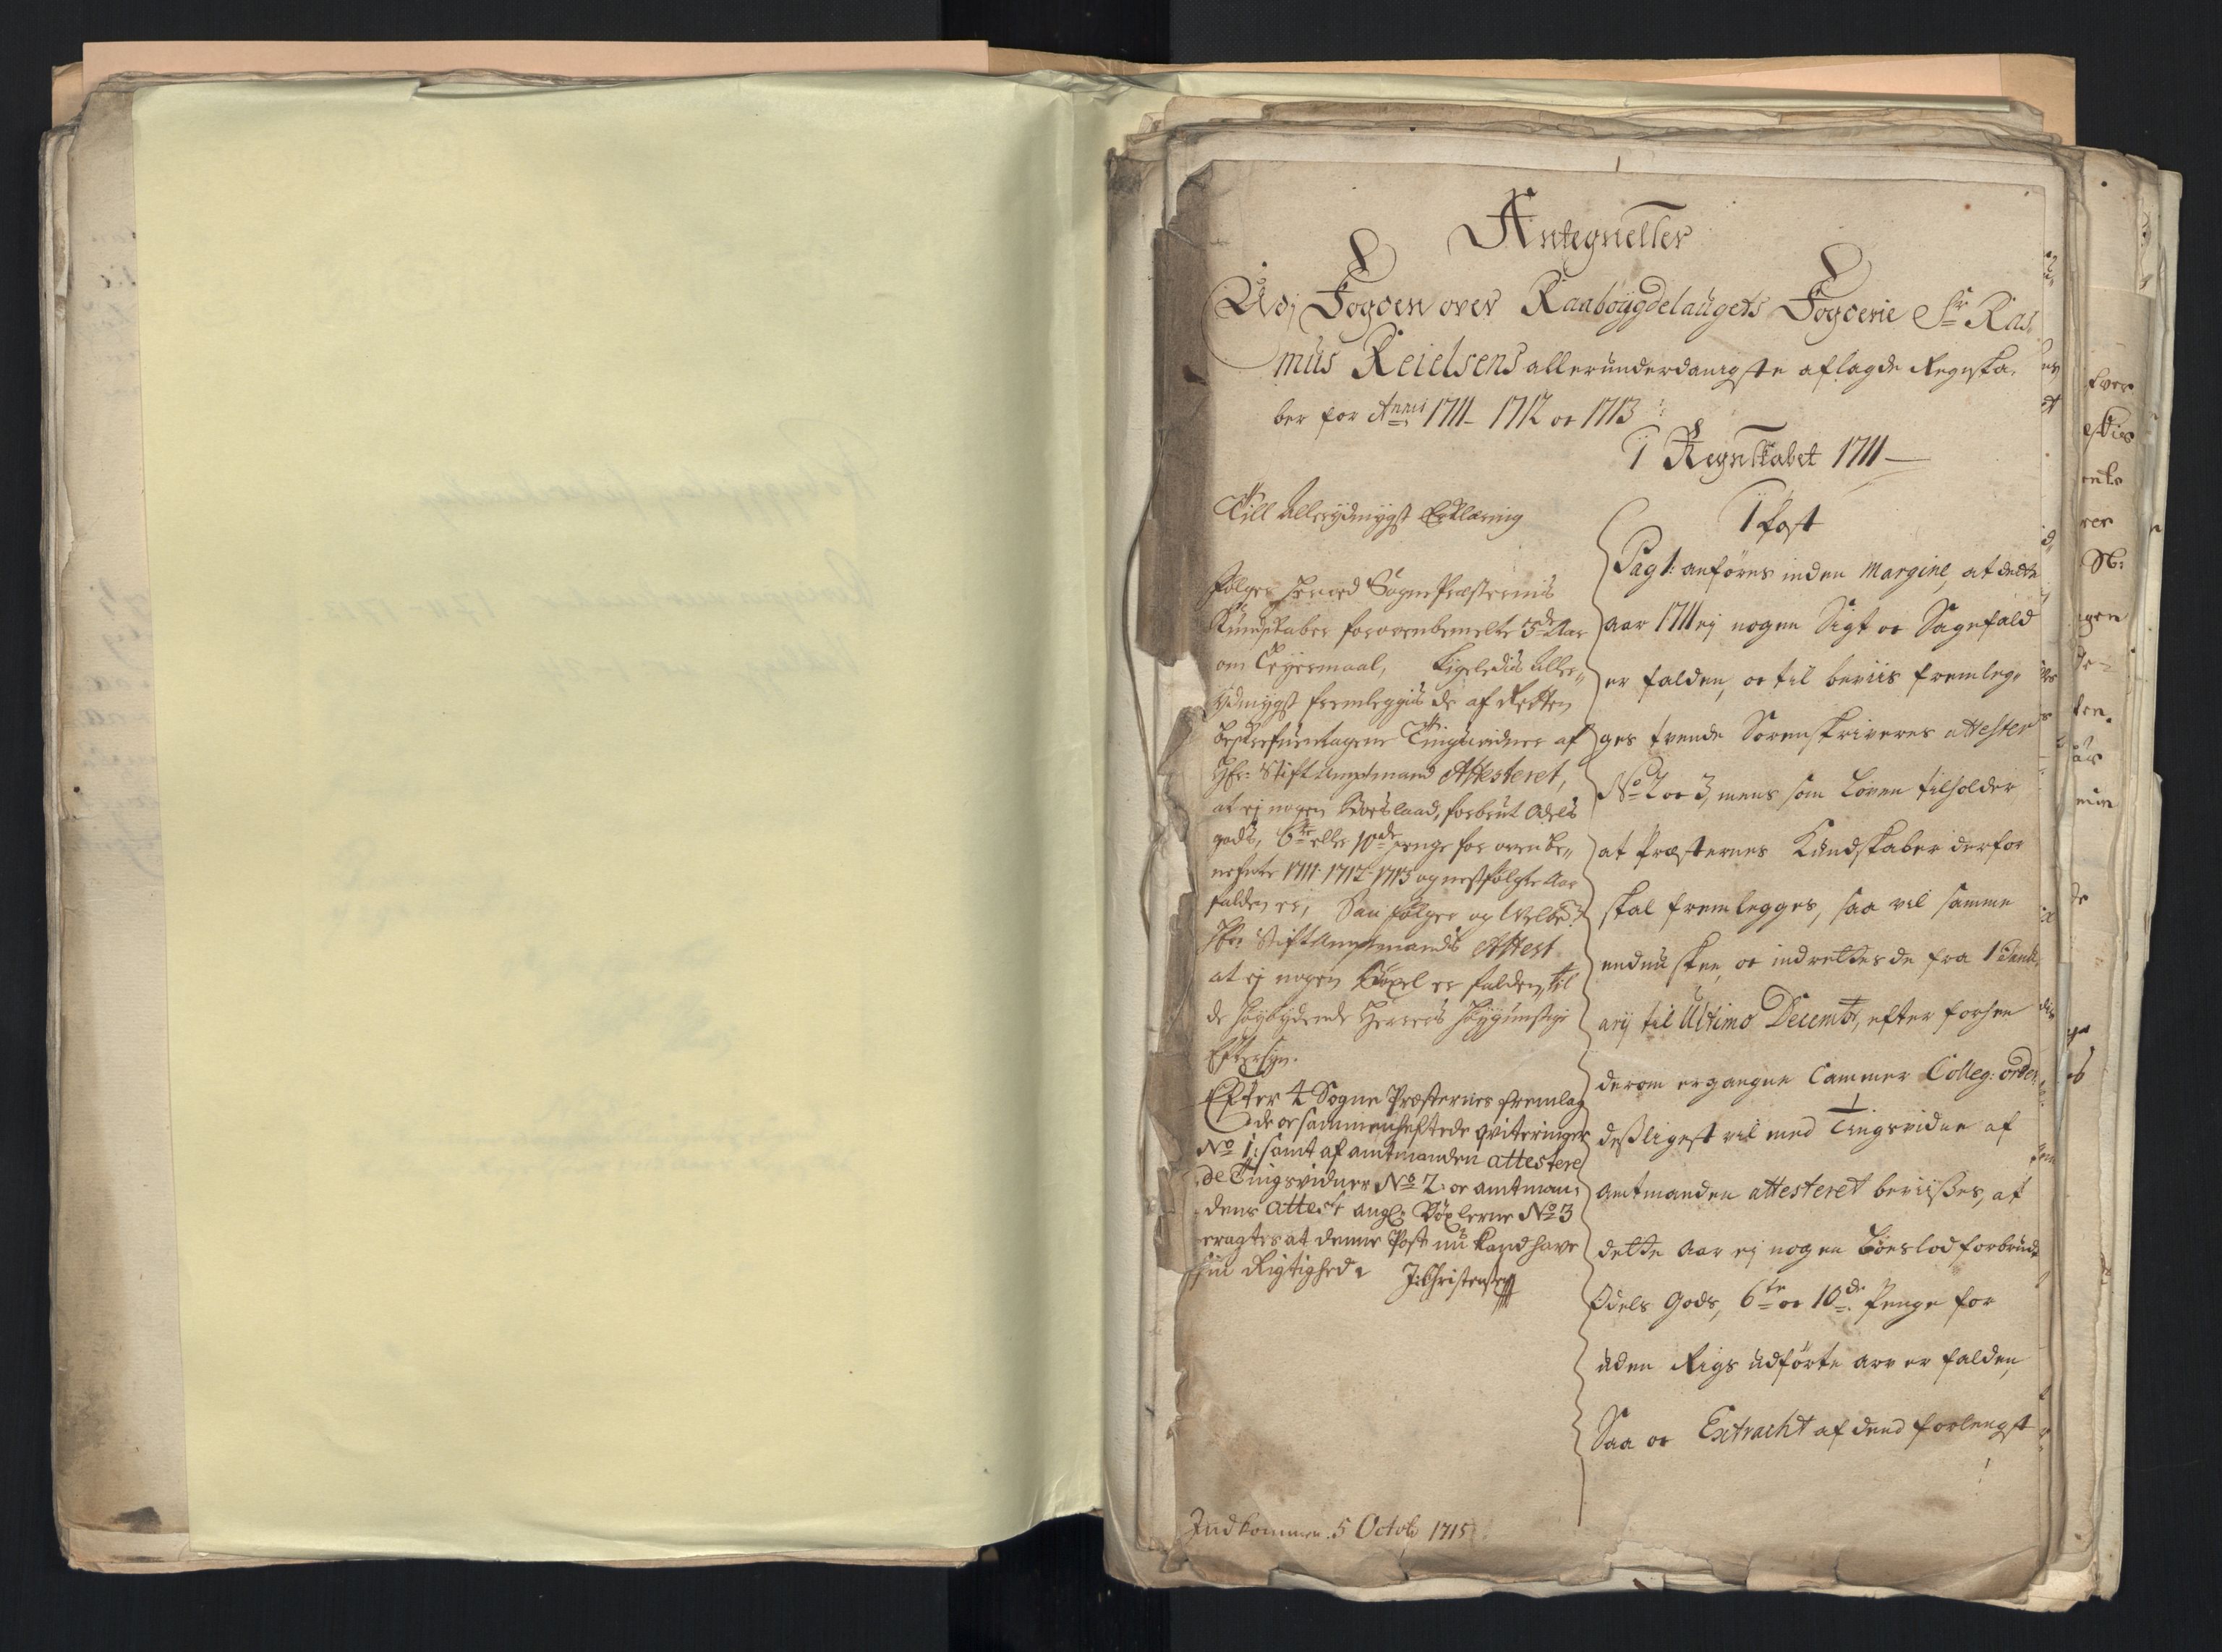 Antegnelser
Udj Fogden over Raabøygdelaugets Fogderie Sr Ras
mus Reielsens allerunderdanigste aflagde Regnska-
ber for Anni 1711- 1712 oc 1713
I Regnskabet 1711
Till allerydmygst Erklæring
Følger herved Sogne Præsternis
Kundskaber for ovenbemelte 3de Aar
om Leyermaal, ligeledis aller-
ydmygst fremleggis de af Retten
beskrefuentagene Tingsvidner af
Hr: Stiftamptmand Attesteret,
at ej nogen Boeslaad, forbrut Odels
gods, 6te eller 10de penge for oven be-
nefnte 1711. 1712. 1713 og nestfølgte Aar
falden er, Saa følger og Welbr
Hr: StiftAmptmands Attest
at ej nogen Bøxel er falden, til
de høybydende Herrers høygunstige
Eftersyn.
Efter 4 Sogne Præsternes fremlag
de oc sammenheftede qviteringer
No 1: samt af amtmanden attestere
de Tingsvidner No 2: oc amtman-
dens attest angl: Bøxlerne No 3
eragtes at denne Post nu kand have
sin Rigtighed J: Christensen
1 Post
Pag 1: anføres inden Margine, at dette
aar 1711 ej nogen Sigt oc Sagefald
er falden, oc til beviis fremleg-
ges tvende Sorenskriveres attester
No 2 oc 3, mens som Loven tilholder
at Præsternes Kundskaber derfor
skal fremlegges, saa vil samme
endnu skee, oc indrettes de fra 1 Janu-
arij til Ultimo Decembr, efter forhen
derom ergangne Cammer Colleg: order
desligest vil med Tingsvidne af
Amtmanden attesteret beviisses, at
dette Aar ej nogen Boeslod forbrudt
Odels Gods, 6te oc 10de Penge for
uden Rigs udførte arv er falden,
Saa oc Extracht af dend forlengst
Indkommen 5 Octobr 1715